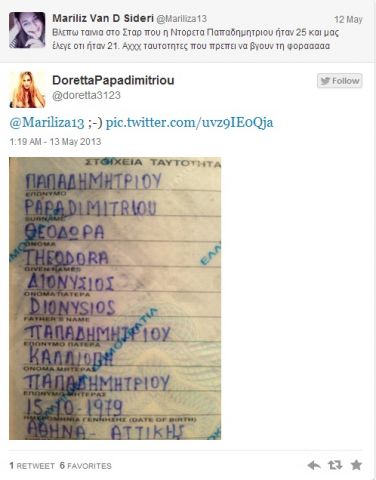 Mariliz Van D Sideri @Mariliza13 12 May
Βλεπω ταινια στο Σταρ που η Ντορετα Παπαδημητριου ήταν 25 και μας
έλεγε οτι ήταν 21. Αχχχ ταυτοτητες που πρεπει να βγουν τη φοραααααα
DorettaPapadimitriou
@doretta3123
Follow
@Mariliza13 ;-) pic.twitter.com/uvz9IE0Qja
1:19 AM - 13 May 2013
ΣΤΟΙΧΕΙΑ ΤΑΥΤΟΤΗΤΑ
ΠΑΠΑΔΗΜΗΤΡΙΟΥ
ΕΠΩΝΥΜΟ
PAPADIMITRIOU
SURNAME
ΘΕΟΔΩΡΑ
ΟΝΟΜΑ
THEODORA
GIVEN NAMES
ΔΙΟΝΥΣΙΟΣ
ΟΝΟΜΑ ΠΑΤΕΡΑ
DIONYSIOS
FATHER'S NAME
ΠΑΠΑΔΗΜΗΤΡΙΟΥ
ΕΠΩΝΥΜΟ ΠΑΤΕΡΑ
ΚΑΛΛΙΟΠΗ
ΟΝΟΜΑ ΜΗΤΕΡΑΣ
ΠΑΠΑΔΗΜΗΤΡΙΟΥ
ΕΠΩΝΥΜΟ ΜΗΤΕΡΑΣ
15-10-1979
ΗΜΕΡΟΜΗΝΙΑ ΓΕΝΝΗΣΗΣ (DATE OF BIRTH)
ΑΘΗΝΑ- ΑΤΤΙΚΗΣ
1 RETWEET 6 FAVORITES